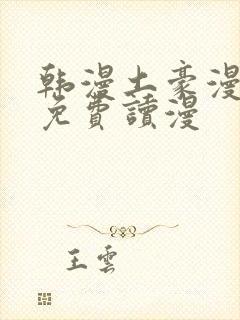 韩漫土豪漫
免費讀漫
王雲